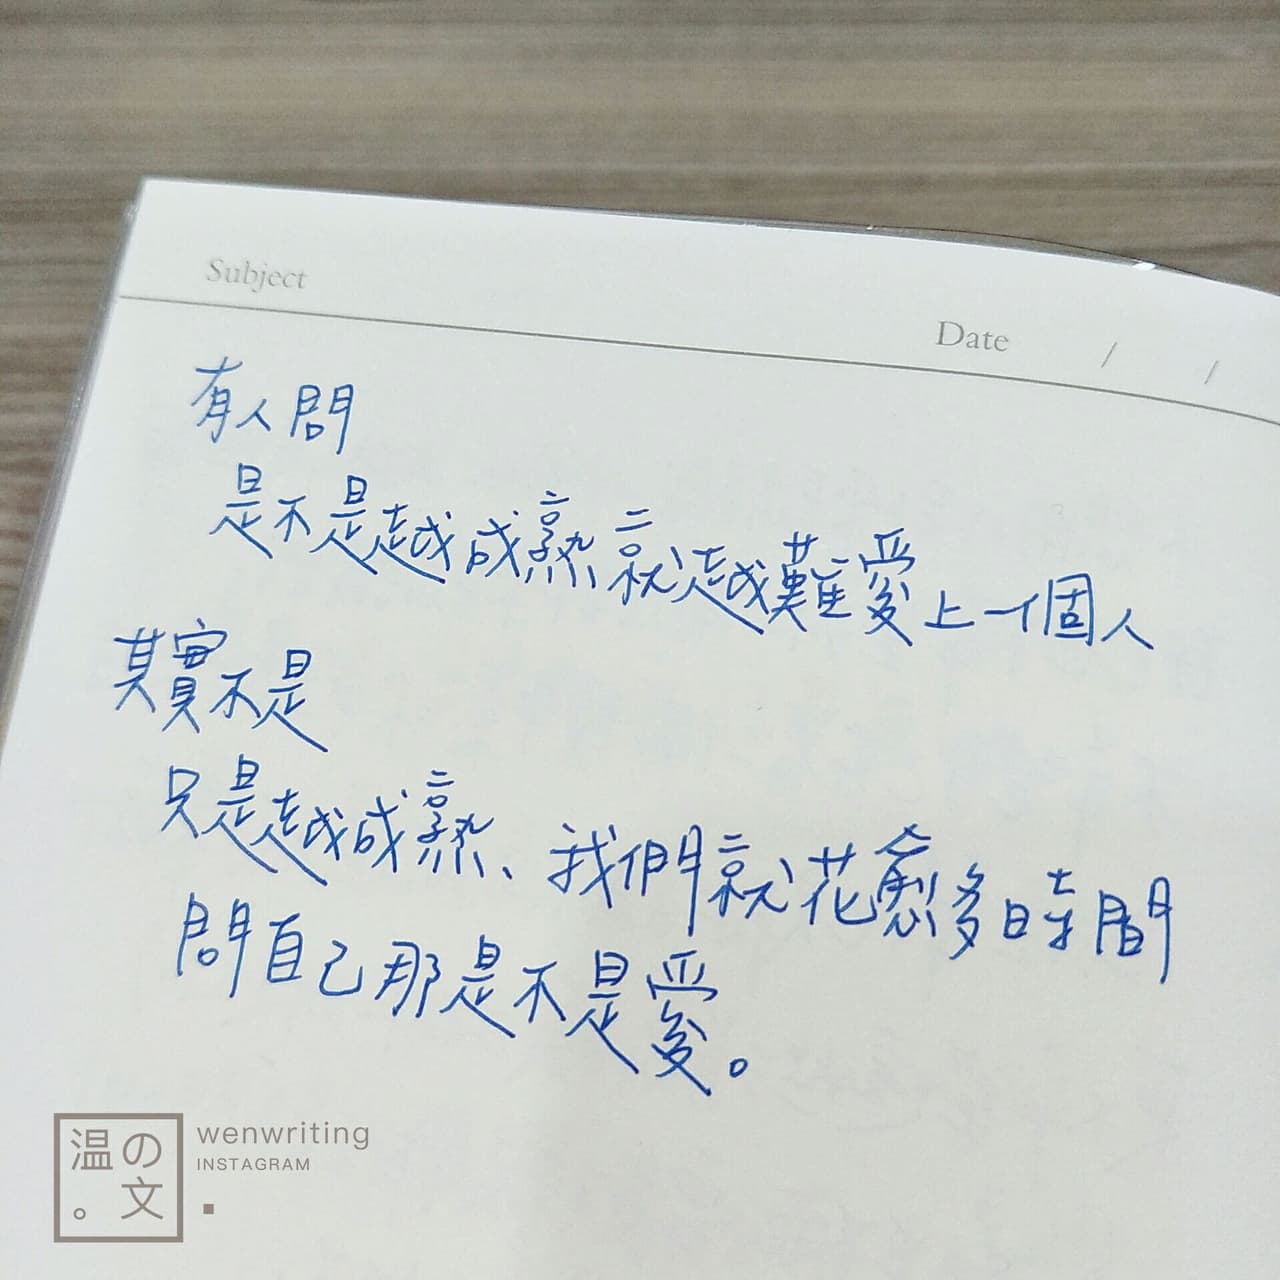 Subject
Date / /
有人問
是不是越成熟就越難愛上一個人
其實不是
只是越成熟、我們就花愈多時間
問自己那是不是愛。
温の文。
wenwriting
INSTAGRAM